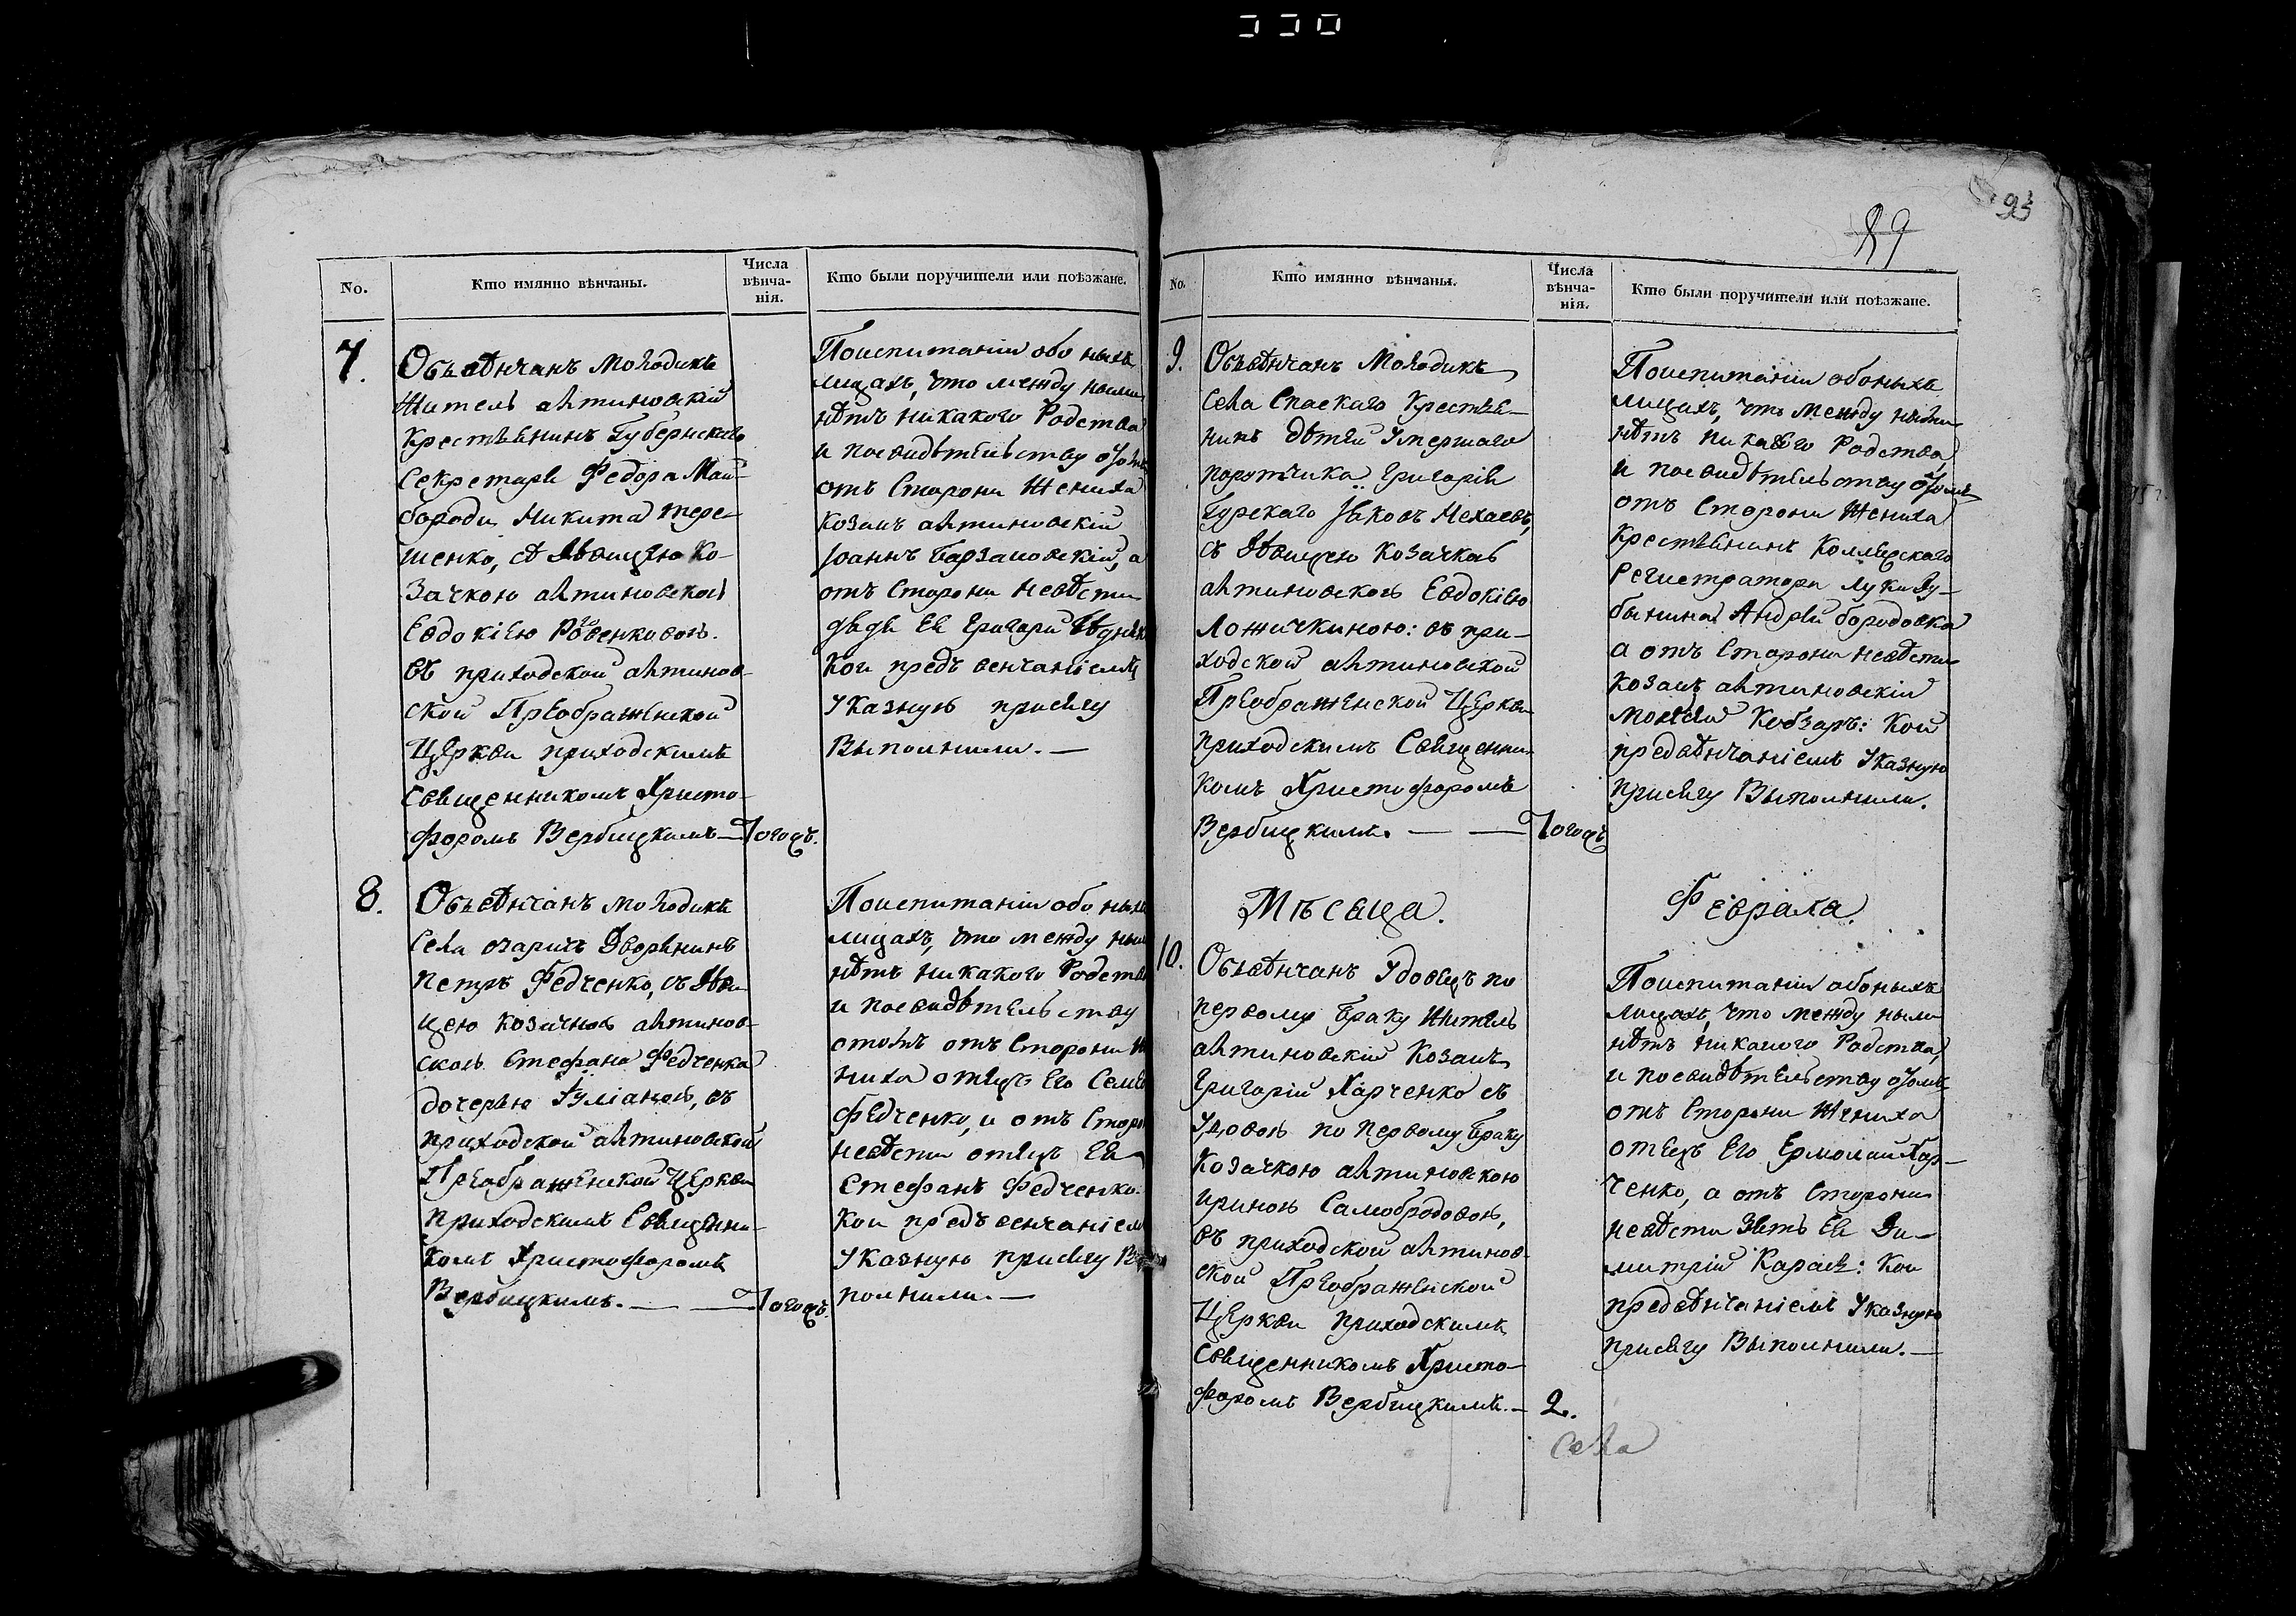 93
89
No.
Кто имянно вѣнчаны.
Числа
вѣнча-
нія.
Кто были поручители или поѣзжане.
7.
Обвѣнчанъ молодикъ
житель алтиновскій
крестьянинъ Губернскаго
Секретаря Федора Май-
бороди Никита Тере-
шенко, съ дѣвицею ко-
зачкою алтиновскою
Евдокіею
въ приходской алтинов-
ской Преображенской
Церкви приходскимъ
священникомъ Христо-
форомъ Вербицкимъ —
Тогожъ.
Поиспитаніи обоныхъ
лицахъ, что между ними
нѣтъ никакого родства
и посвидѣтельству отомъ
отъ сторони жениха
козакъ алтиновскій
Іоаннъ а
отъ сторони невѣсти
дядя ея Григорій
кои предъ венчаніемъ
указную присягу
выполнили. —
8.
Обвѣнчанъ молодикъ
села озаричъ дворянинъ
Петръ Федченко, съ дѣви-
цею козачкою алтинов-
скою Стефана Федченка
дочерью Іуліаною, въ
приходской алтиновской
Преображенской Церкви
приходскимъ священни-
комъ Христофоромъ
Вербицкимъ. — —
Тогожъ.
Поиспитаніи обоныхъ
лицахъ, что между ними
нѣтъ никакого родства
и посвидѣтельству
отомъ отъ сторони же
ниха отецъ его Семе
Федченко, и отъ сторо
невѣсти отецъ ея
Стефанъ Федченко.
кои предъ венчаніем
указную присягу вы
полнили. —
No.
Кто имянно вѣнчаны.
Числа
вѣнча-
нія.
Кто были поручители или поѣзжане.
9.
Обвѣнчанъ молодикъ
села Спаскаго крестья-
нинъ дѣтей умершаго
порутчика Григорія
Яковъ
съ дѣвицею козачкою
алтиновскою Евдокіею
Ложичкиною: въ при-
ходской алтиновской
Преображенской Церкви
приходскимъ священни-
комъ Христофоромъ
Вербицкимъ. — —
Тогожъ
Поиспитаніи обоныхъ
лицахъ, что между ними
нѣтъ никакого родства,
и посвидѣтельству отомъ
отъ сторони жениха
крестьянинъ Коллежскаго
Регистратора Луки
Андрей бородавка
а отъ сторони невѣсти
козакъ алтиновскій
Моисей Кобзарь: кои
предвѣнчаніемъ указную
присягу выполнили.
Мѣсяца.
Февраля.
10.
Обвѣнчанъ удовецъ по
первому браку житель
алтиновскій козакъ
Григорій Харченко съ
удовою по первому браку
козачкою алтиновскою
Іриною Самобродовою,
въ приходской алтинов-
ской Преображенской
Церкви приходскимъ
священникомъ Христо-
форомъ Вербицкимъ. —
2.
Поиспитаніи обоныхъ
лицахъ, что между ними
нѣтъ никакого родства,
и посвидѣтельству отомъ
отъ сторони жениха
отецъ его Ермолай Хар-
ченко, а отъ сторони
невѣсти зять ея Ди-
митрій Карась: кои
предвѣнчаніемъ указную
присягу выполнили. —
Села